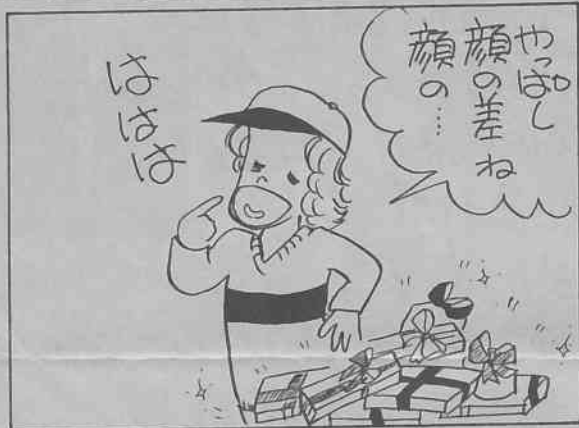 やっぱし
顔の差ね
顔の…
ははは